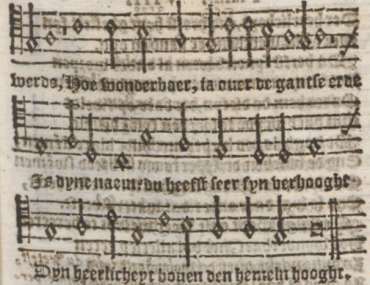 werds, Hoe wonderbaer, ja ouer de gantse erde
Is dyne naem: du heefst seer syn verhooght
Dyn heerlicheyt bouen den hemeln hooght.